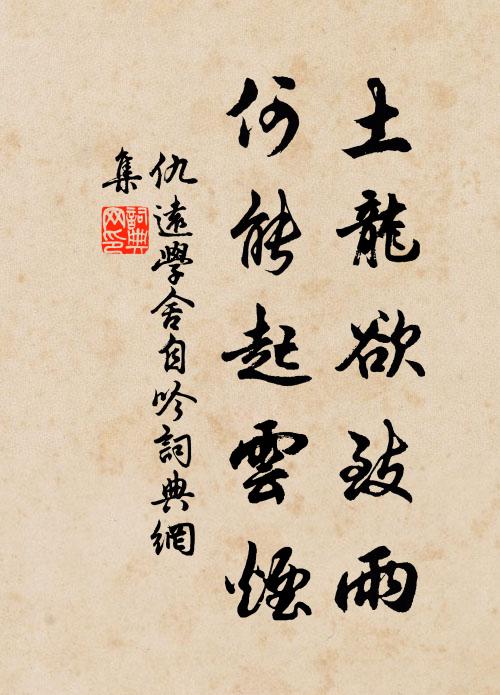 土龍欲致雨
何能起雲煙
仇遠學舍自吟詞典網
集
詞典
网印